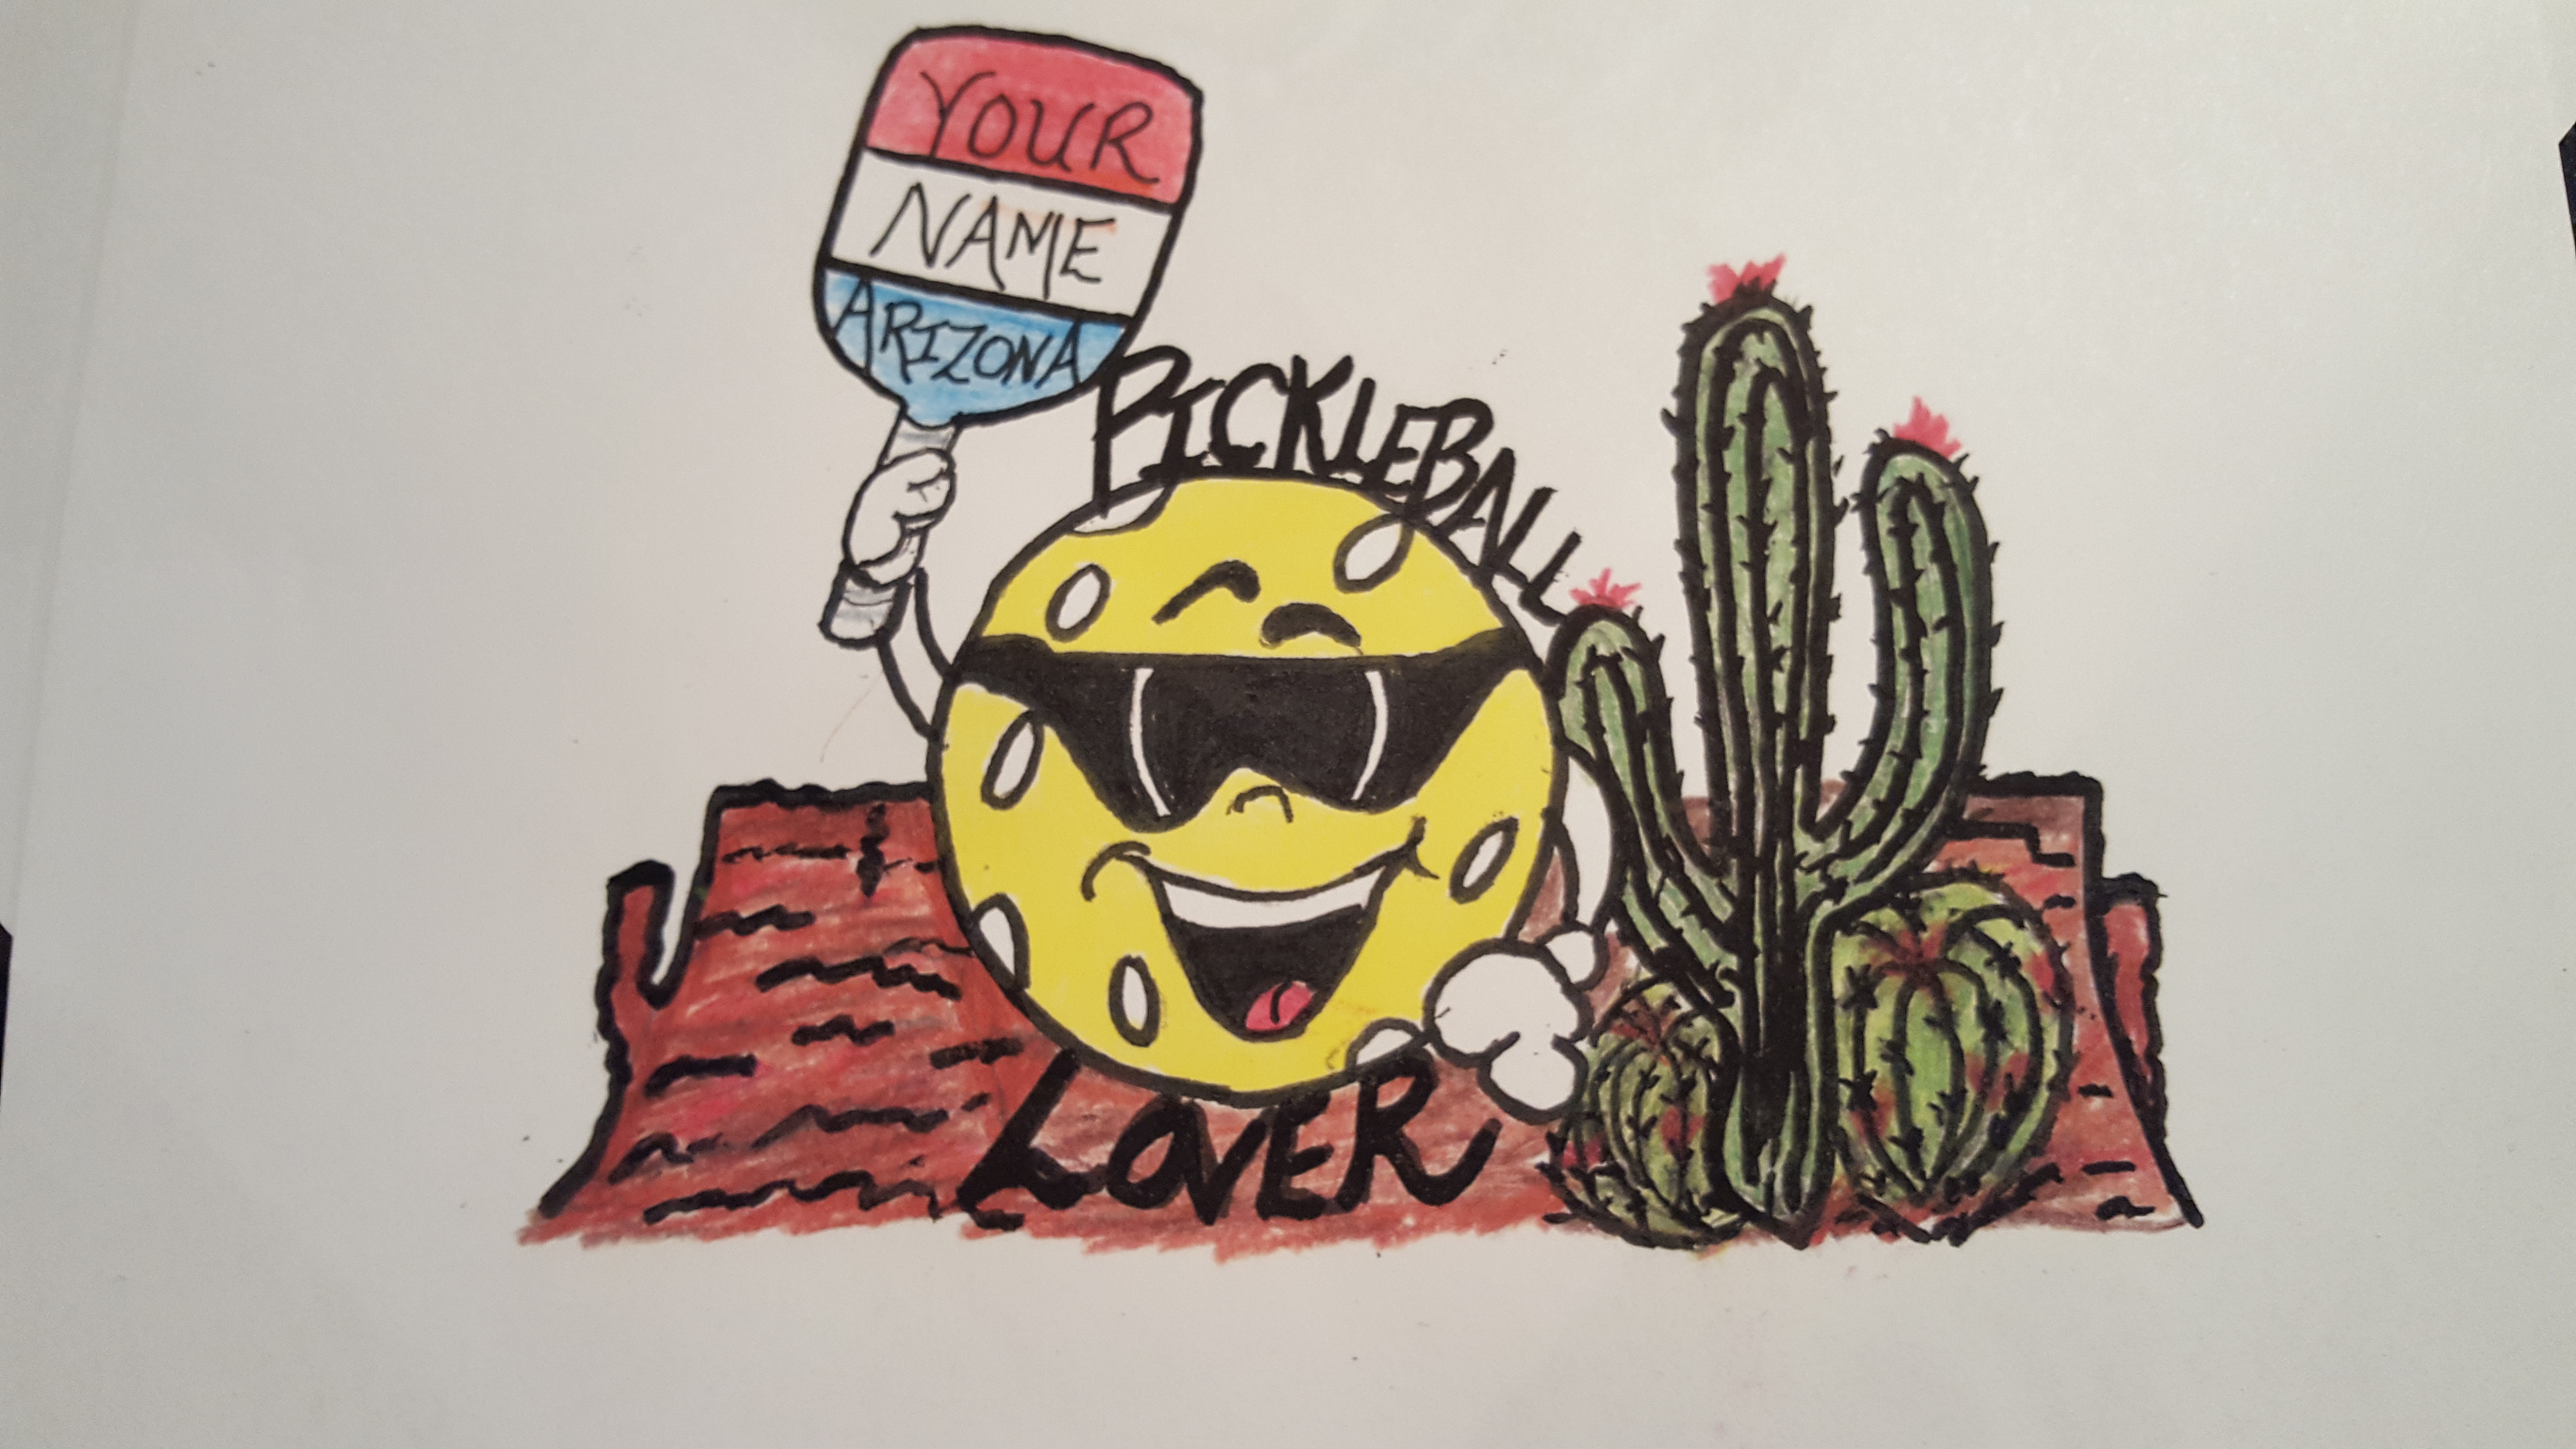 YOUR
NAME
ARIZONA
PICKLEBALL
LOVER